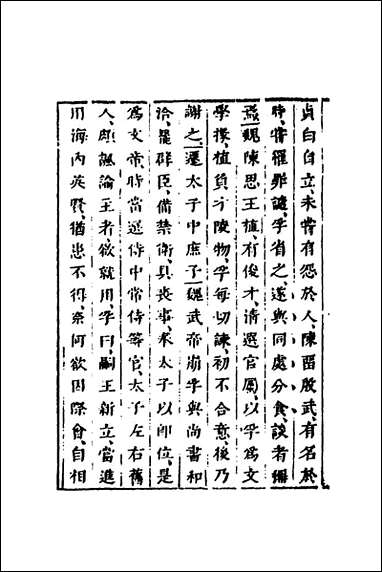 貞白自立、未嘗有怨於人、陳畱殷武、有名於
時、嘗罹罪譴、孚省之、遂與同處分食、談者稱
焉、魏陳思王植、有俊才、清選官屬、以孚爲文
學掾、植負才陵物、孚每切諫、初不合意、後乃
謝之、遷太子中庶子、魏武帝崩、孚與尚書和
洽、罷群臣、備禁衛、具喪事、奉太子以即位、是
爲文帝、時當選侍中常侍等官、太子左右舊
人、頗諷諭主者、欲就用、孚曰、嗣王新立、當進
用海內英賢、猶患不得、奈何欲因際會自相